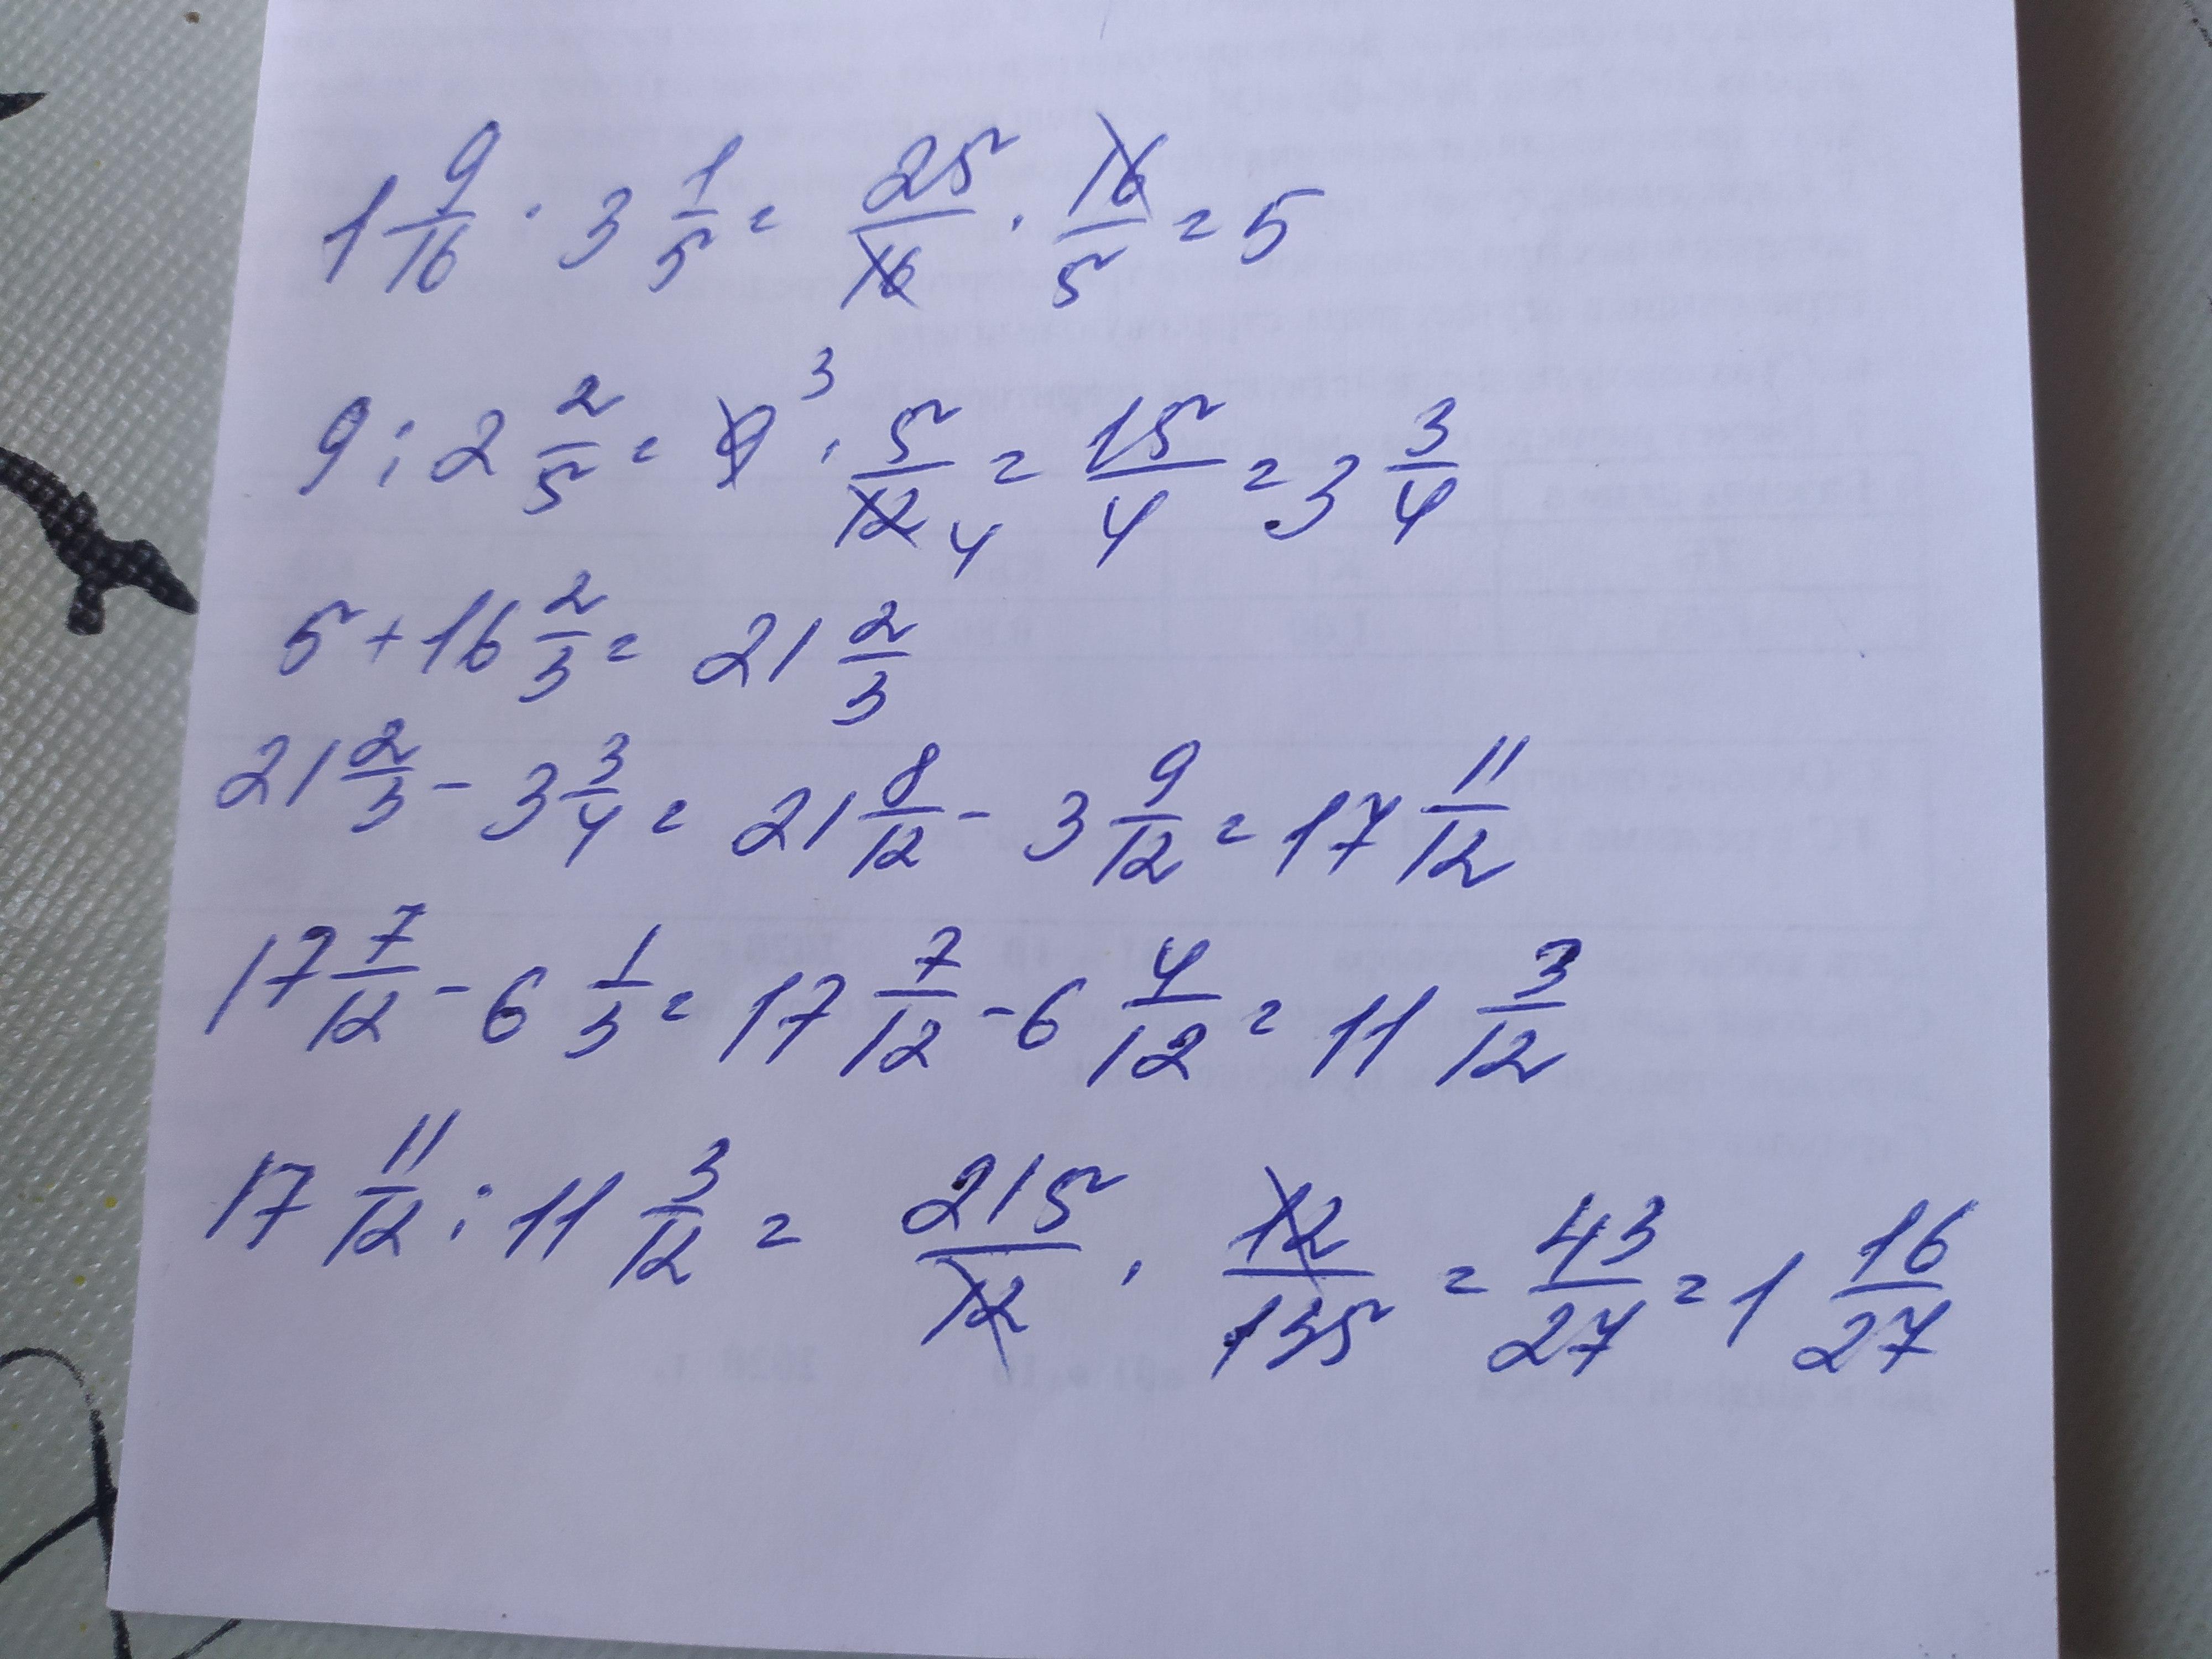 1 9/16 · 3 1/5 = 25/16 · 16/5 = 5
9 : 2 2/5 = 9 3 · 5/12 4 = 15/4 = 3 3/4
5 + 16 2/3 = 21 2/3
21 2/3 - 3 3/4 = 21 8/12 - 3 9/12 = 17 11/12
17 7/12 - 6 1/3 = 17 7/12 - 6 4/12 = 11 3/12
17 11/12 : 11 3/12 = 215/12 · 12/135 = 43/27 = 1 16/27